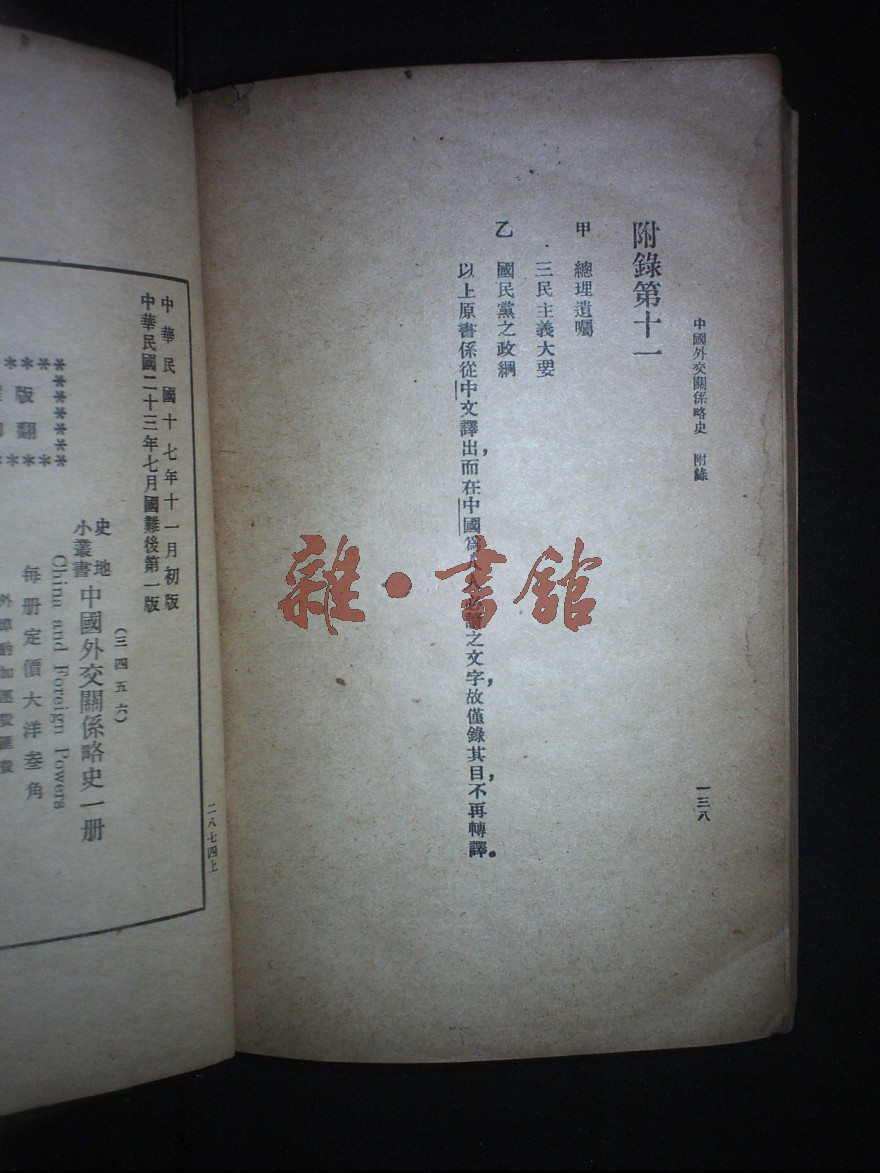 中國外交關係略史 附錄
一三八
附錄第十一
甲 總理遺囑
三民主義大要
乙 國民黨之政綱
以上原書係從中文譯出，而在中國爲人人必讀之文字，故僅錄其目，不再轉譯。
雜·書館
中華民國十七年十一月初版
中華民國二十三年七月國難後第一版
(三四五六)
史地小叢書 中國外交關係略史一册
China and Foreign Powers
每册定價大洋叁角
外埠酌加運費匯費
版 翻
二八七四上